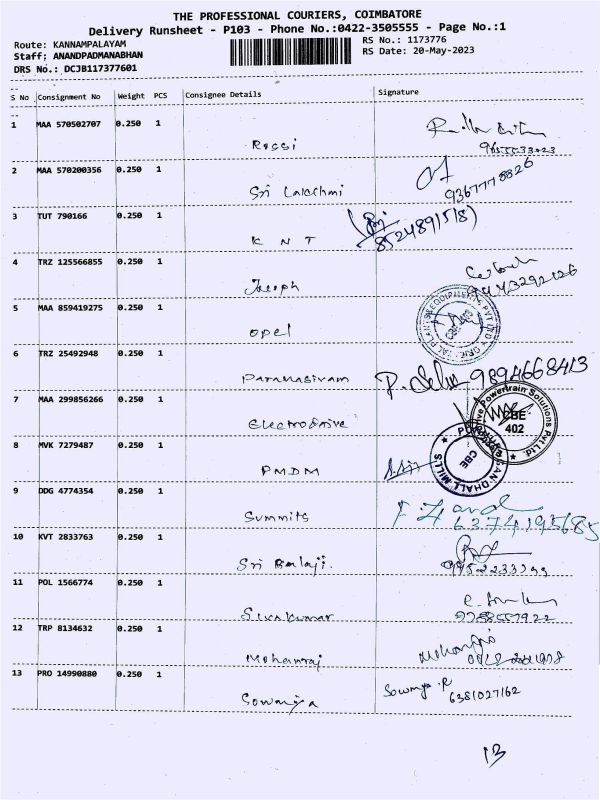 THE PROFESSIONAL COURIERS, COIMBATORE
Delivery Runsheet - P103 - Phone No.:0422-3505555 - Page No.:1
Route: KANNAMPALAYAM RS No.: 1173776
Staff: ANANDPADMANABHAN RS Date: 20-May-2023
DRS No.: DCJB117377601
S No Consignment No Weight PCS Consignee Details Signature
1 MAA 570502707 0.250 1 Rossi
2 MAA 570200356 0.250 1 Sri Lakshmi 9367778826
3 TUT 790166 0.250 1 K N T
4 TRZ 125566855 0.250 1 Joseph
5 MAA 859419275 0.250 1 Opel
6 TRZ 25492948 0.250 1 Paramasivam 9894668413
7 MAA 299856266 0.250 1 Electrodrive
Powertrain Solutions Pvt Ltd
CBE
402
8 MVK 7279487 0.250 1 PMDM
CBE
9 DDG 4774354 0.250 1 Summits
10 KVT 2833763 0.250 1 Sri Balaji
11 POL 1566774 0.250 1 Sivakumar
12 TRP 8134632 0.250 1 Mohanraj
13 PRO 14990880 0.250 1 Sowmiya Sowmya.R 6381027162
13